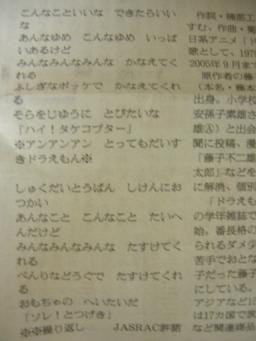 こんなこといいな できたらいい
な
あんなゆめ こんなゆめ いっぱ
いあるけど
みんなみんなみんな かなえてく
れる
ふしぎなポッケで かなえてくれ
る
そらをじゆうに とびたいな
「ハイ！タケコプター」
※アンアンアン とってもだいす
きドラえもん※
しゅくだいとうばん しけんにお
つかい
あんなこと こんなこと たいへ
んだけど
みんなみんなみんな たすけてく
れる
べんりなどうぐで たすけてくれ
る
おもちゃの へいたいだ
「ソレ！とつげき」
※※繰り返し JASRAC許諾
作詞・楠部工
すむ。作曲・菊
日系アニメ「
歌として、197
2005年9月ま
原作者の藤
（本名・藤本
出身。小学校
安孫子素雄さ
雄Ⓐ）と出会
聞に投稿、漫
「藤子不二雄
太郎」などを
に解消、個別
「ドラえも
の学年雑誌で
始。番長格の
られるダメ
苦手でおとな
子だった藤子
にしている。
アジアなどに
は17カ国で放
など関連商品